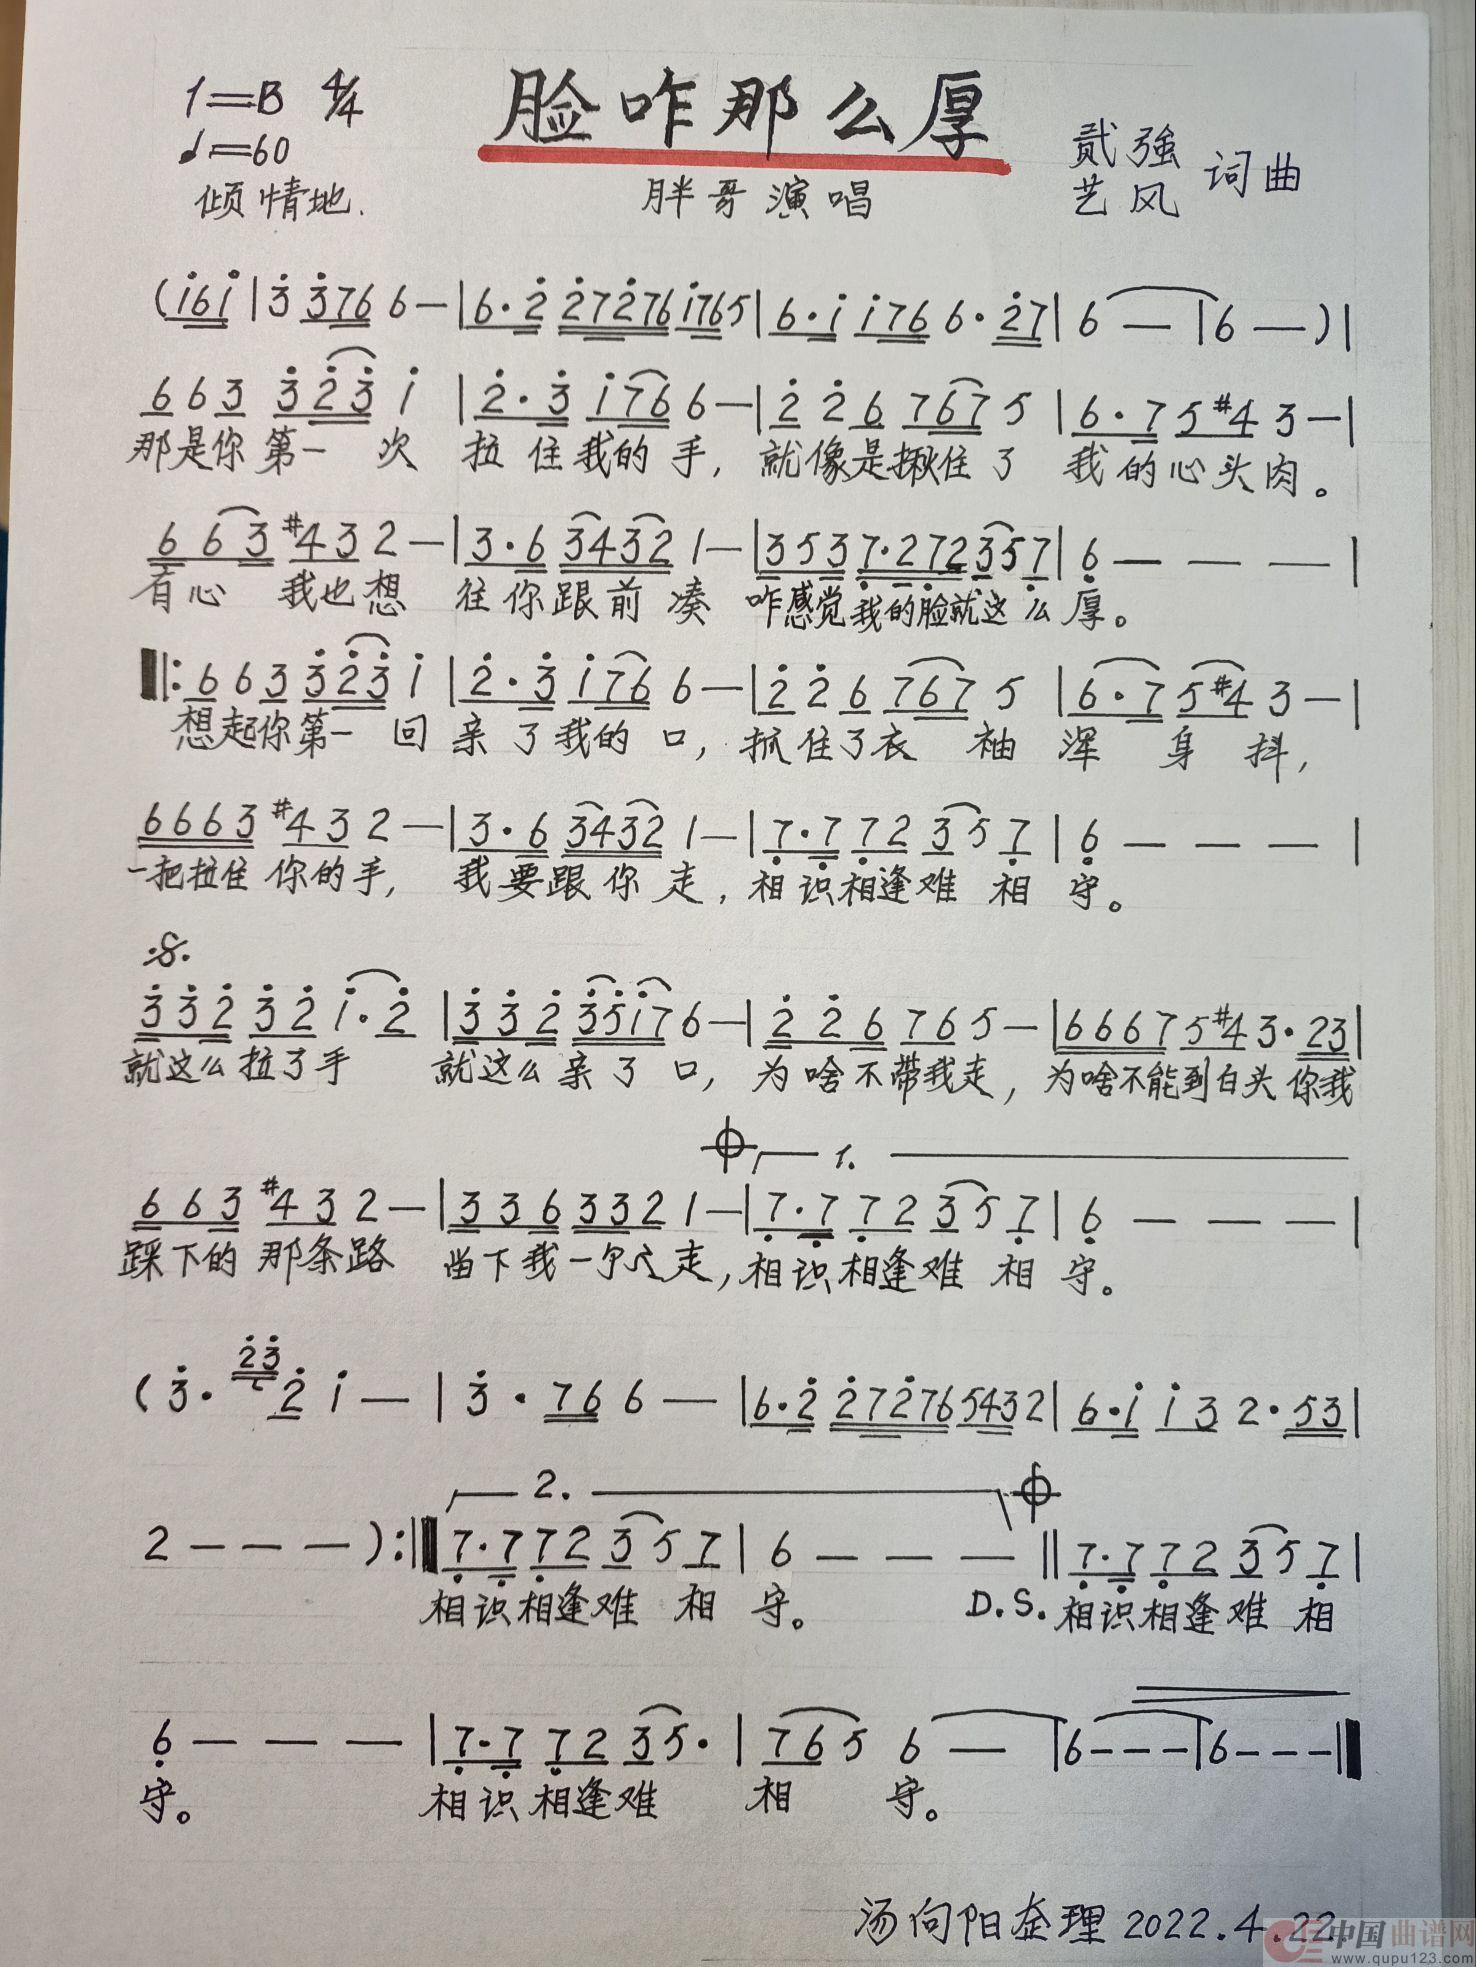 1=B 4/4
脸咋那么厚
♩=60
倾情地.
胖哥演唱
贰强
艺风
词曲
(i6i|3 376 6—|6·2 27276 i765|6·i i76 6·27|6 —|6 —)|
663 323 i |2·3 i76 6—|2 2 6 767 5 |6·7 5#4 3—|
那是你第一 次 拉住我的手, 就像是揪住了 我的心头肉。
6 63 #43 2 —|3·6 3432 1—|353 7·272 357|6 — — — |
有心 我也想 往你跟前凑 咋感觉我的脸就这么厚。
‖:663 323 i |2·3 i76 6—|2 2 6 767 5 |6·7 5#4 3—|
想起你第一 回 亲了我的口, 抓住了衣 袖 浑 身 抖,
6663 #43 2 —|3·6 3432 1—|7·7 72 35 7|6 — — — |
一把拉住 你的手, 我要跟你走, 相识相逢难 相 守。
𝄋
332 32 i·2 |332 35i7 6—|2 2 6 76 5 —|6667 5#4 3·23|
就这么拉了手 就这么亲了口, 为啥不带我走, 为啥不能到白头 你我
1.
663 #43 2—|336 332 1—|7·7 72 35 7|6 — — — |
踩下的 那条路 留下我一个人走, 相识相逢难 相 守。
(3· 23 2 i — |3·76 6 — |6·2 27276 5432|6·i i3 2·53|
2.
2 — — —):‖7·7 72 35 7|6 — — — ‖7·7 72 35 7|
相识相逢难 相 守。 D.S. 相识相逢难 相
6 — — — |7·7 72 35·|76 5 6 —|6---|6---‖
守。 相识相逢难 相 守。
汤向阳整理 2022.4.22
中国曲谱网
www.qupu123.com